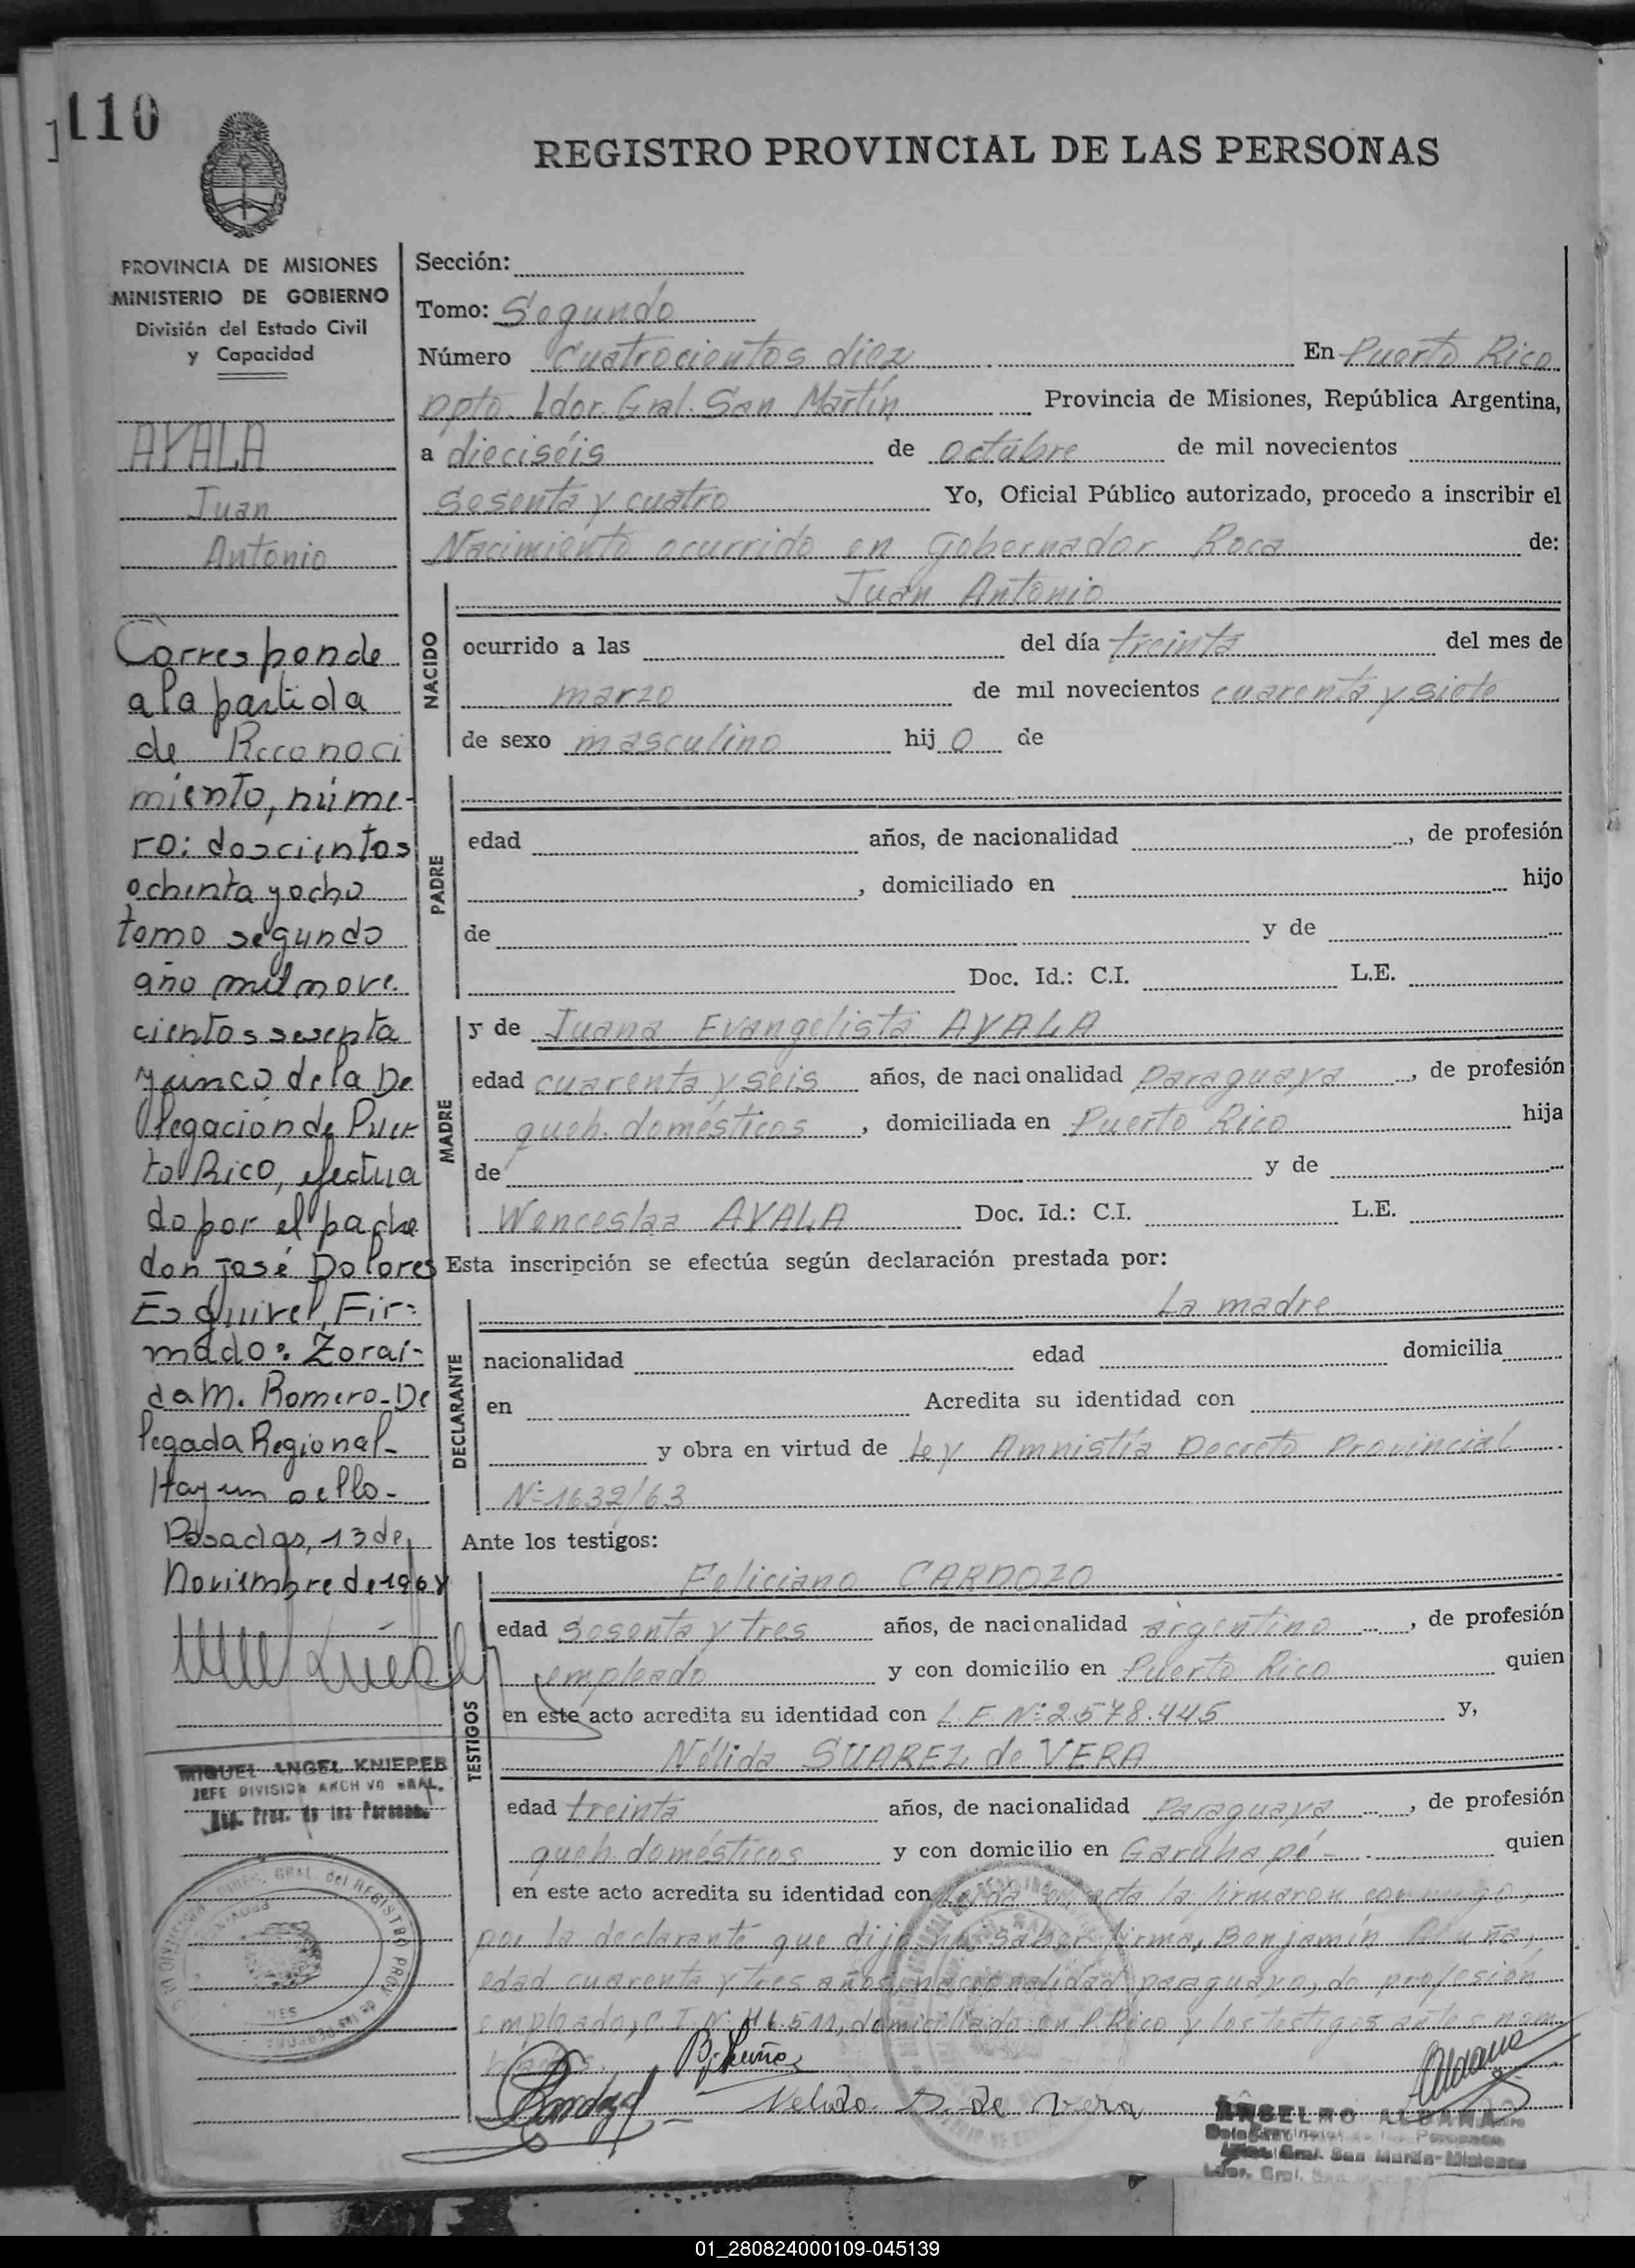 110
REGISTRO PROVINCIAL DE LAS PERSONAS
PROVINCIA DE MISIONES
MINISTERIO DE GOBIERNO
División del Estado Civil
y Capacidad
AYALA
Juan
Antonio
Corresponde
a la partida
de Reconoci
miento, núme-
ro: doscientos
ochenta y ocho
tomo segundo
año mil nove.
cientos sesenta
y cinco de la De
legación de Puer
to Rico, efectua
do por el padre
don José Dolores
Esquivel, Fir-
mado: Zorai-
da M. Romero-De
legada Regional-
Hay un sello-
Posadas, 13 de
Noviembre de
MIGUEL ANGEL KNIEPER
JEFE DIVISION ARCHIVO GRAL.
Reg. Prov. de las Personas
Sección:
Tomo: Segundo
Número Cuatrocientos diez En Puerto Rico
Dpto. Ldor. Gral. San Martín Provincia de Misiones, República Argentina,
a dieciséis de octubre de mil novecientos
sesenta y cuatro Yo, Oficial Público autorizado, procedo a inscribir el
Nacimiento ocurrido en Gobernador Roca de:
NACIDO
Juan Antonio
ocurrido a las del día treinta del mes de
marzo de mil novecientos cuarenta y siete
de sexo masculino hij o de
PADRE
edad años, de nacionalidad , de profesión
, domiciliado en hijo
de y de
Doc. Id.: C.I. L.E.
MADRE
y de Juana Evangelista AYALA
edad cuarenta y seis años, de nacionalidad Paraguaya , de profesión
queh. domésticos , domiciliada en Puerto Rico hija
de y de
Wenceslaa AYALA Doc. Id.: C.I. L.E.
Esta inscripción se efectúa según declaración prestada por:
DECLARANTE
La madre
nacionalidad edad domicilia
en Acredita su identidad con
y obra en virtud de Ley Amnistía Decreto Provincial
Nº 1632/63
Ante los testigos:
TESTIGOS
Feliciano CARDOZO
edad sesenta y tres años, de nacionalidad argentino , de profesión
empleado y con domicilio en Puerto Rico quien
en este acto acredita su identidad con L.E. Nº 2.578.445 y,
Nélida SUAREZ de VERA
edad treinta años, de nacionalidad Paraguaya , de profesión
queh. domésticos y con domicilio en Garuhapé- quien
en este acto acredita su identidad con Leída el acta la firmaron conmigo,
por la declarante que dijo no saber firmar, Benjamín Acuña,
edad cuarenta y tres años, nacionalidad paraguayo, de profesión
empleado, C.I. Nº 46.511, domiciliado en P. Rico y los testigos antes nom
brados.
B. Acuña
Nelida S. de Vera
Aldana
ANSELMO ALDANA
Gral. San Martín-Misiones
01_280824000109-045139